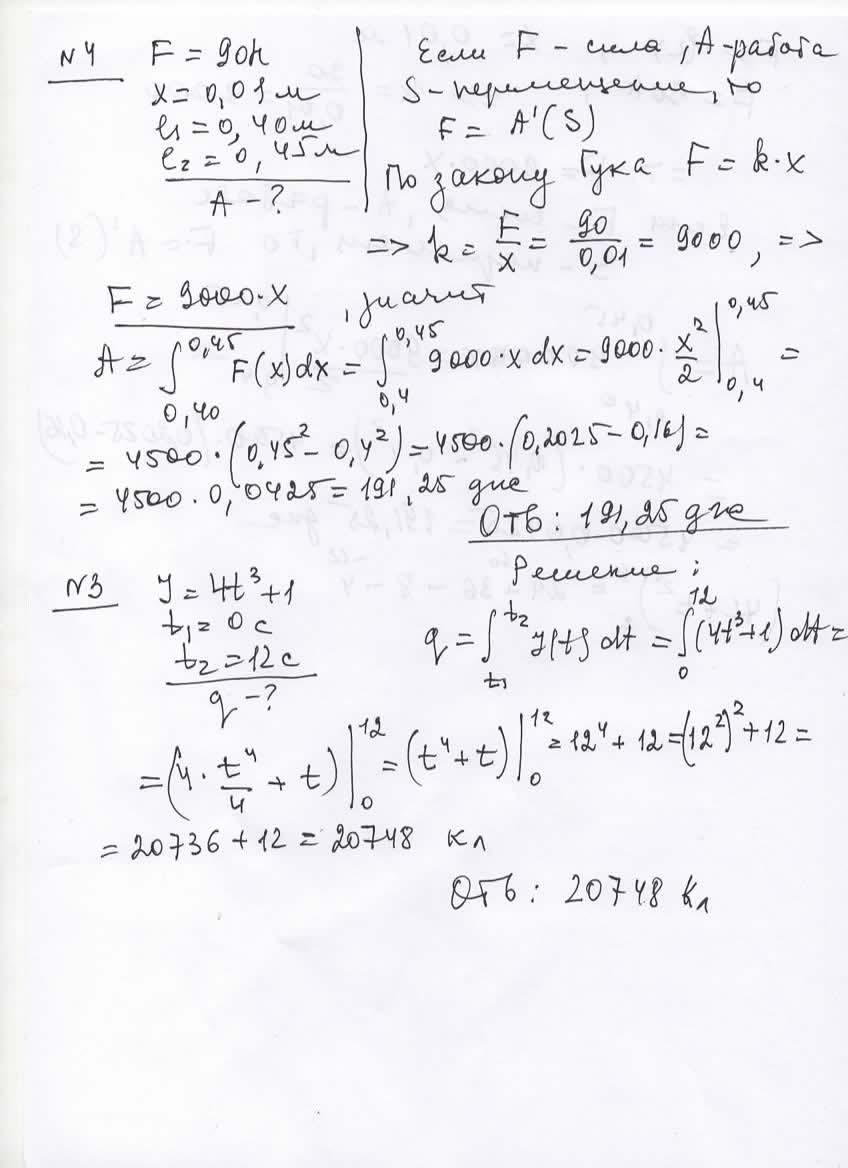 №4 F = 90н
x = 0,01 м
l₁ = 0,40 м
l₂ = 0,45 м
A - ?
Если F - сила, A - работа
S - перемещение, то
F = A'(S)
По закону Гука F = k·x
=> k = F/x = 90/0,01 = 9000, =>
F = 9000·x, значит
A = ∫₀,₄₀^0,45 F(x)dx = ∫₀,₄^0,45 9000·x dx = 9000·x²/2 |₀,₄^0,45 =
= 4500·(0,45² - 0,4²) = 4500·(0,2025 - 0,16) =
= 4500·0,0425 = 191,25 дже
Отв: 191,25 дже
№3 J = 4t³+1
t₁ = 0 с
t₂ = 12 с
q - ?
Решение:
q = ∫ₜ₁^t₂ J(t) dt = ∫₀^12 (4t³+1) dt =
= (4·t⁴/4 + t) |₀^12 = (t⁴+t) |₀^12 = 12⁴ + 12 = (12²)² + 12 =
= 20736 + 12 = 20748 кл
Отв: 20748 Кл